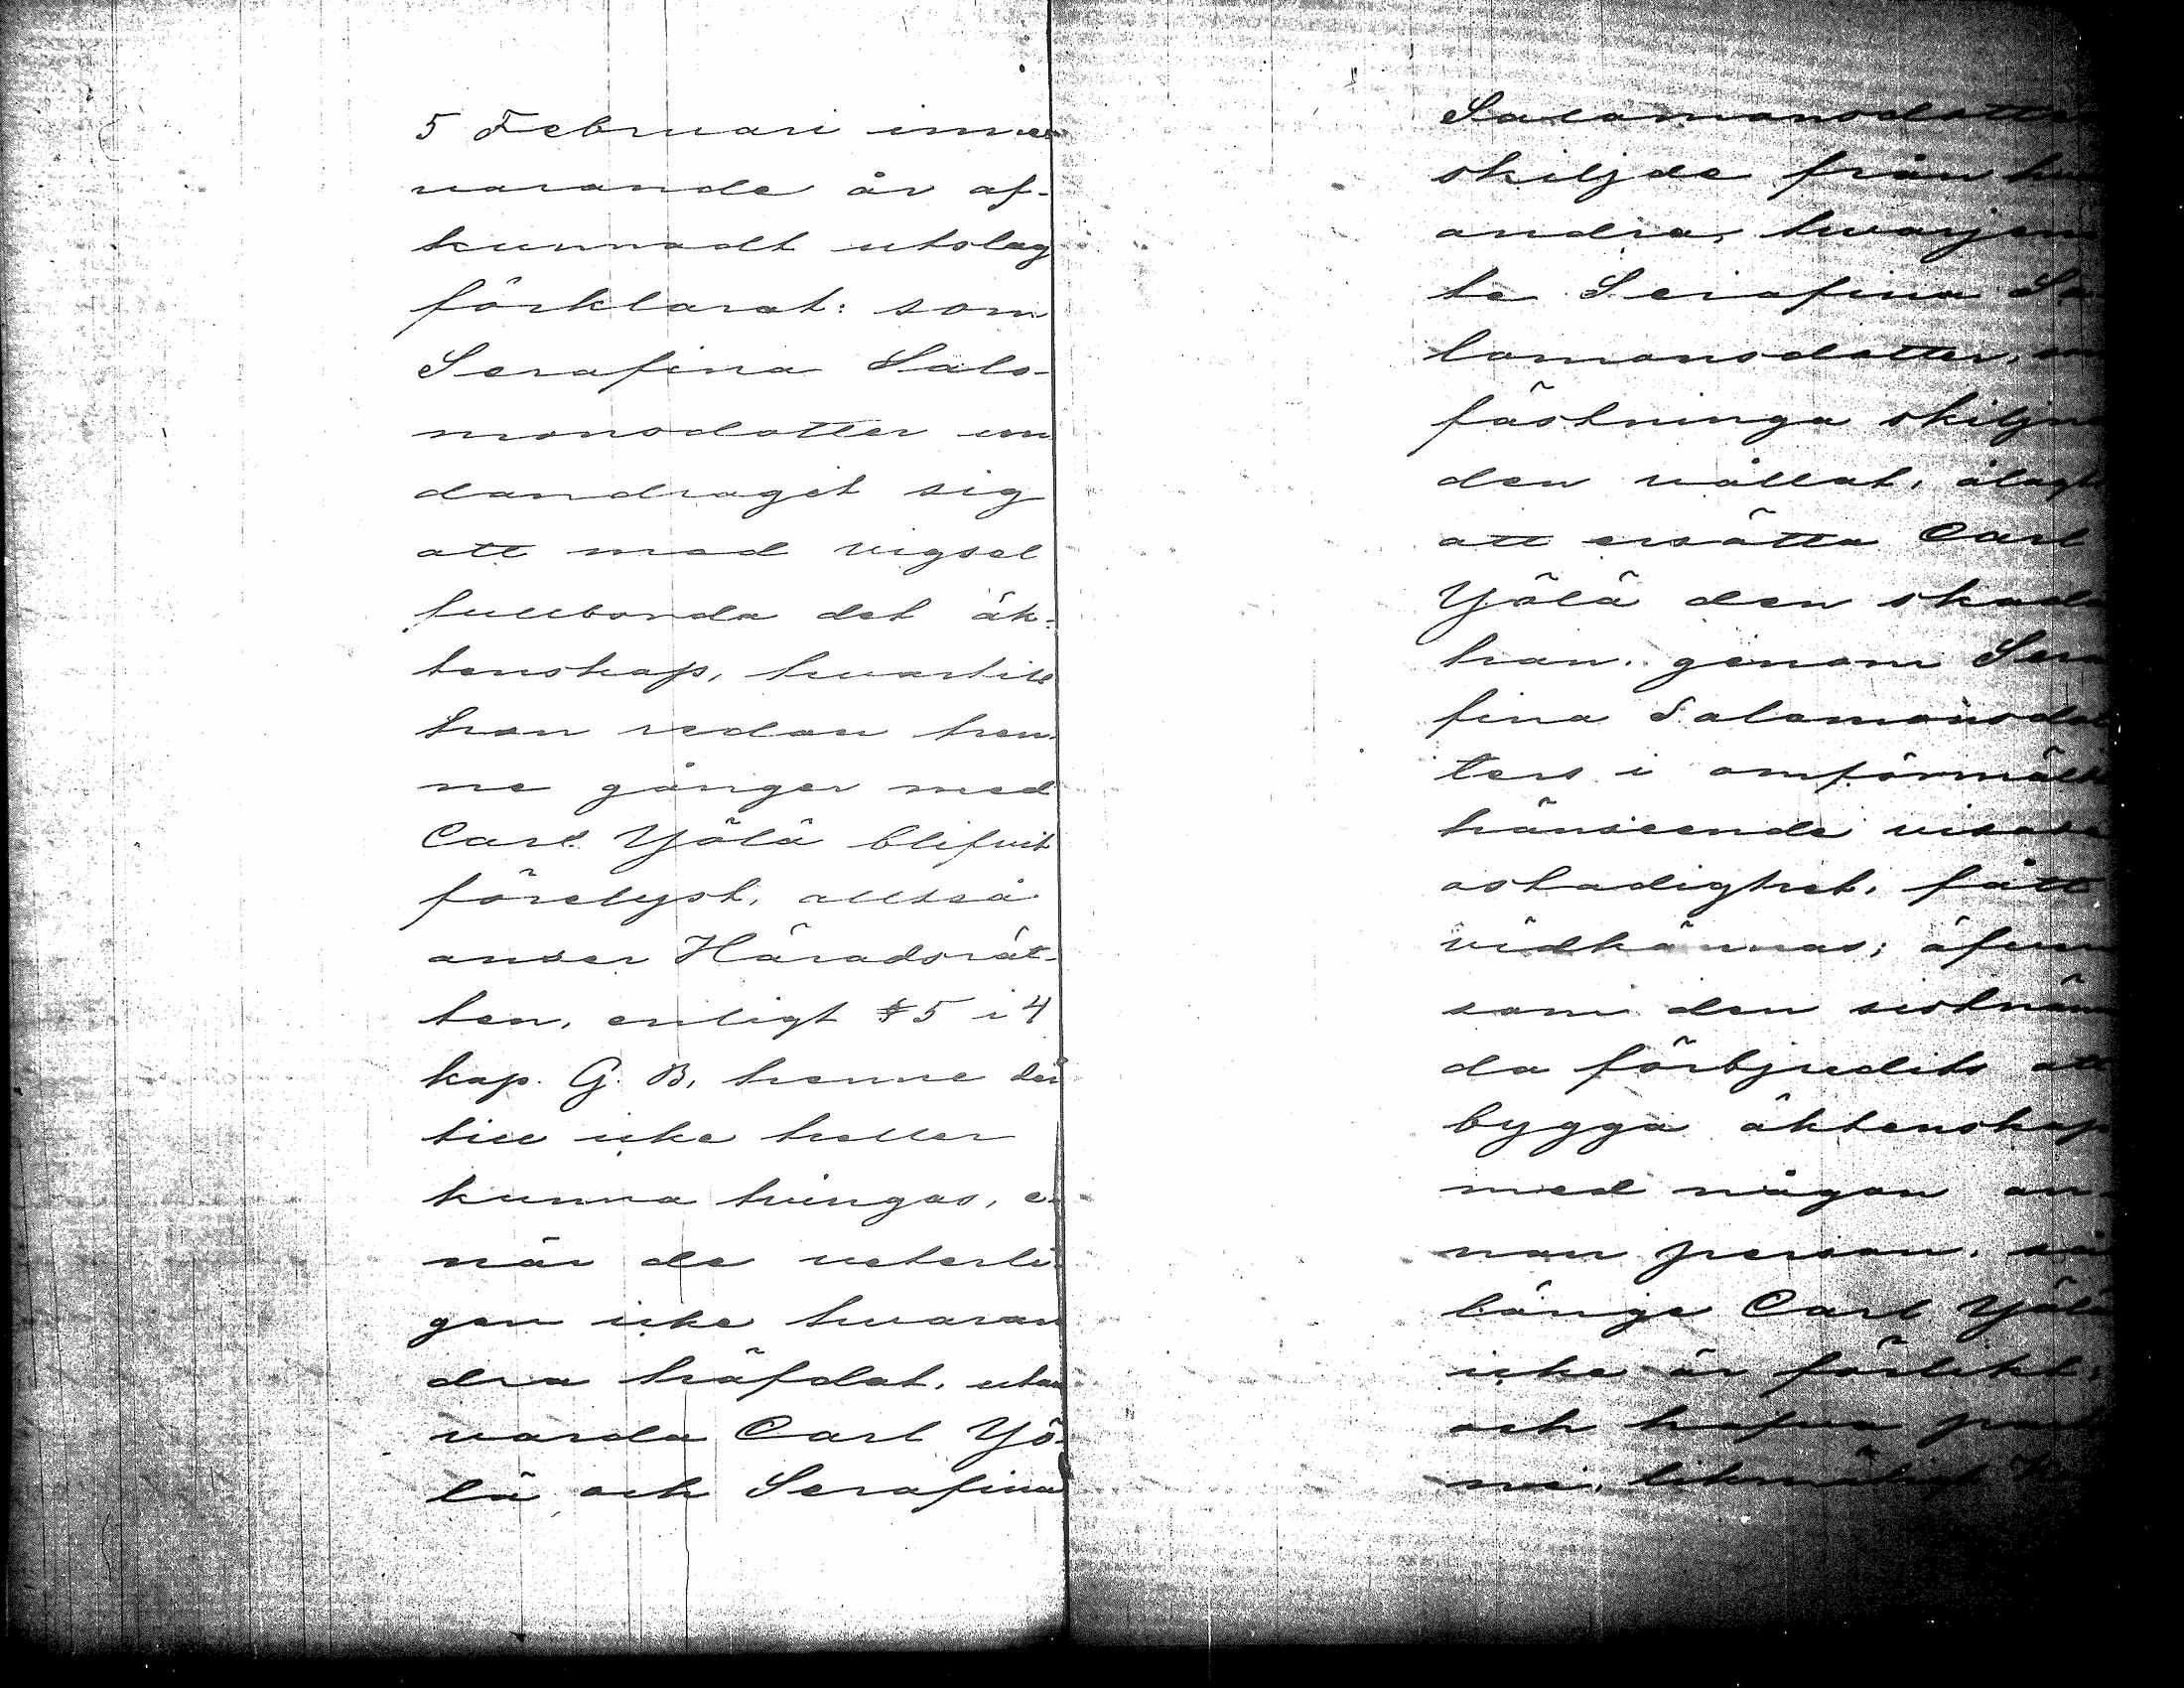 5 Februari inne-
varande år af-
kunnadt utslag
förklarat: som
Serafina Salo-
monsdotter un
dandragit sig
att med vigsel
fullborda det äk-
tenskap, hvartill
hon redan tren-
ne gånger med
Carl Yölä blifvit
förelyst, alltså
anser Häradsrät-
ten, enligt § 5 i 4
kap. G. B. henne der
till icke heller
kunna tvingas, e-
när de veterli-
gen icke hvaran
dra häfdat, utan
varda Carl Yö-
lä och Serafina
Salomonsdotter
skiljde från hvar
andra, hvarjem
te Serafina Sa-
lomonsdotter, som
fästninga skiljna
den vållat, ålagts
att ersätta Carl
Yölä den skada
han genom Sera
fina Salomonsdot
ters i omförmält
hänseende visade
ostadighet, fått
vidkännas; äfven
som den sistnäm
da förbjudits att
bygga äktenskap
med någon an-
nan person, så
länge Carl Yölä
icke är förlikt;
och hafva
likmätigt